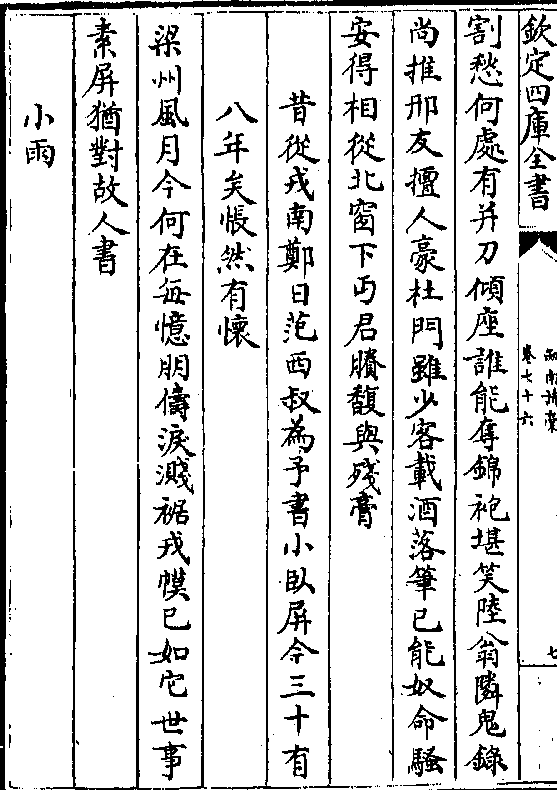 欽定四庫全書
卷七十六
七
割愁何處有并刀傾座誰能奪錦袍堪笑陸翁隣鬼錄
尚推邢友擅人豪杜門雖少客載酒落筆已能奴命騷
安得相從北窗下丐君賸馥與殘膏
昔從戎南鄭日范西叔為予書小臥屏今三十有
八年矣悵然有懷
梁州風月今何在每憶朋儔淚濺裾戎幙已如它世事
素屏猶對故人書
小雨